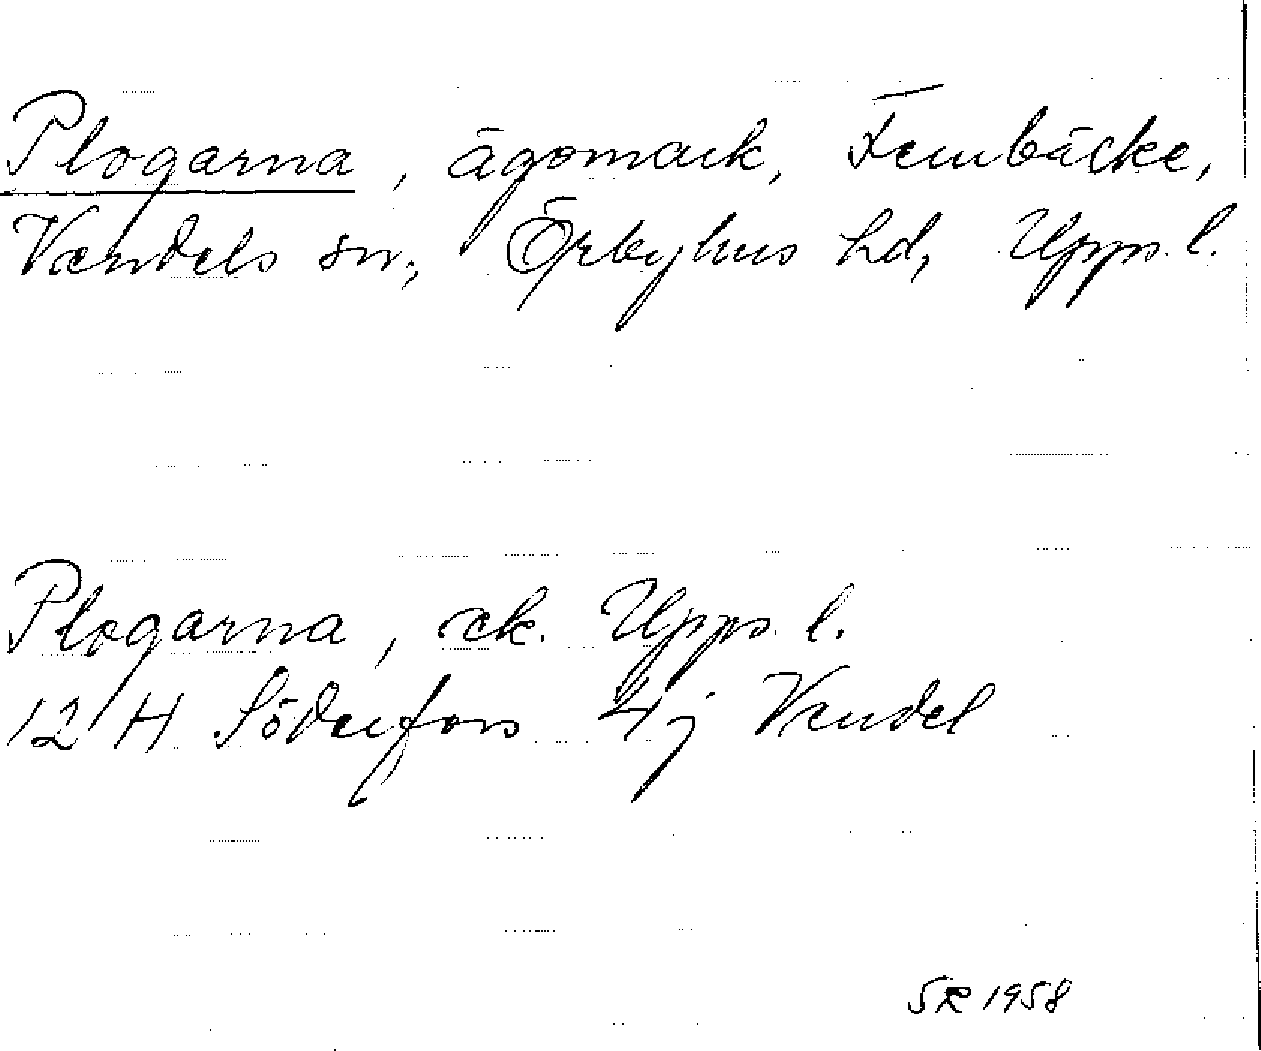 Plogarna, ägomark, Fembäcke,
Vendels sn, Örbyhus hd, Uppl.
Plogarna, ek. Uppl.
12 H Söderfors 4j Vendel
SR 1958